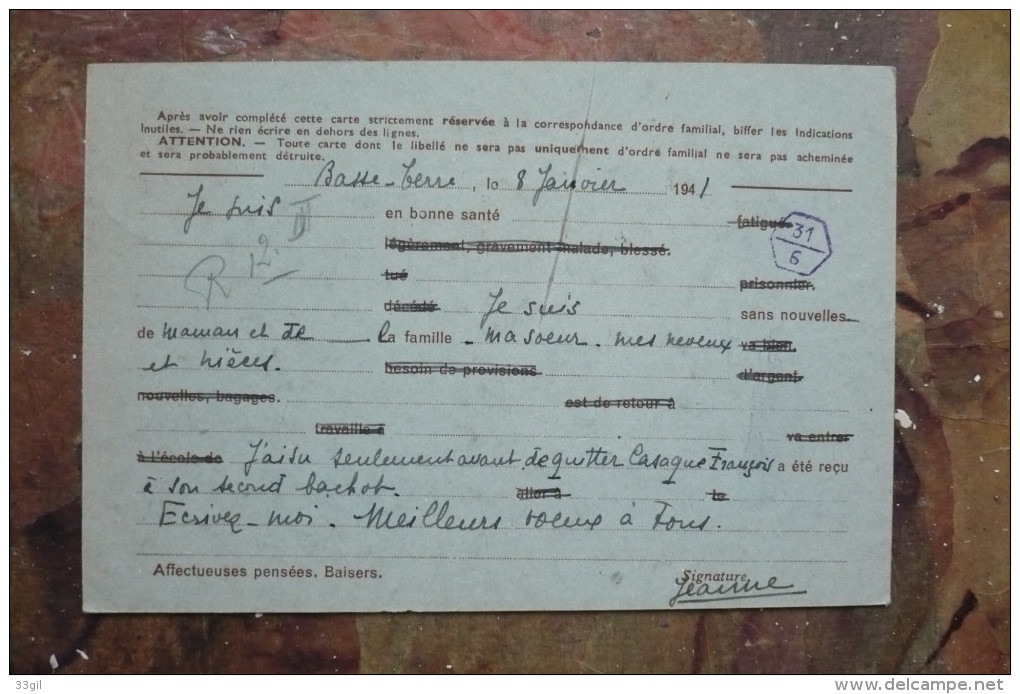 Après avoir complété cette carte strictement réservée à la correspondance d'ordre familial, biffer les indications
inutiles. — Ne rien écrire en dehors des lignes.
ATTENTION. — Toute carte dont le libellé ne sera pas uniquement d'ordre familial ne sera pas acheminée
et sera probablement détruite.
Basse-Terre, le 8 Janvier 1941
Je suis en bonne santé fatigué.
légèrement, gravement malade, blessé.
31
6
R 12 III
tué prisonnier.
décédé Je suis sans nouvelles
de maman et de la famille - ma soeur. mes neveux va bien.
et nièces. besoin de provisions d'argent.
nouvelles, bagages. est de retour à
travaille à va entrer
à l'école de J'ai su seulement avant de quitter Casaque François a été reçu
à son second bachot. aller à le
Ecrivez-moi. Meilleurs voeux à Tous.
Affectueuses pensées. Baisers.
Signature
Jeanne
33gil
www.delcampe.net